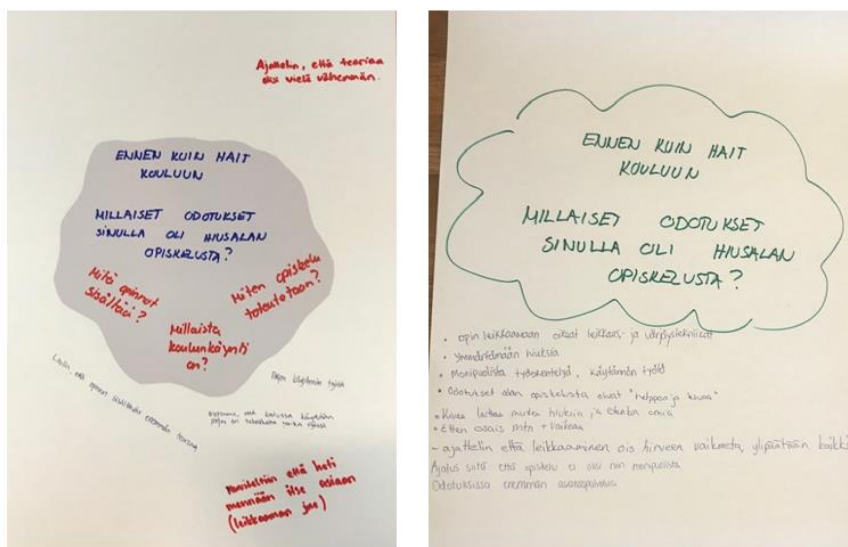 Ajattelin, että teoriaa
olisi vielä vähemmän.
ENNEN KUIN HAIT
KOULUUN
MILLAISET ODOTUKSET
SINULLA OLI HIUSALAN
OPISKELUSTA?
Mitä opinnot
sisältää?
Miten opiskelu
toteutetaan?
Millaista
koulunkäynti
on?
Luulin, että opinnot sisältäisi enemmän teoriaa
että koulussa käydään
Kuviteltiin että heti
mennään itse asiaan
(leikkaaman jne)
ENNEN KUIN HAIT
KOULUUN
MILLAISET ODOTUKSET
SINULLA OLI HIUSALAN
OPISKELUSTA?
• opin leikkaamaan oikeat leikkaus- ja värjäystekniikat
• Ymmärtämään hiuksia
• Monipuolista työskentelyä, käytännön työtä
• Odotukset alan opiskelusta olivat "helppoa ja kivaa"
• Kivaa laittaa muiden hiuksia ja omia
• Etten osais mtn + vaikeaa
- ajattelin että leikkaaminen ois hirveen vaikeeta, ylipäätään kaikki
Ajatus siitä että opiskelu ei olisi niin monipuolista
Odotuksissa enemmän asiakaspalvelua